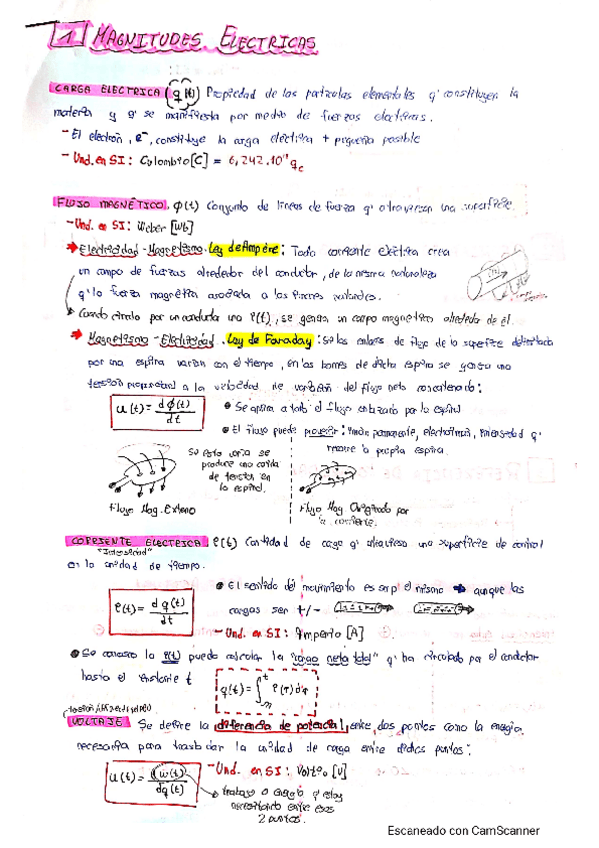 1 MAGNITUDES ELECTRICAS
CARGA ELECTRICA (q(t)) Propiedad de las particulas elementales q' constituyen la
materia y q' se manifiesta por medio de fuerzas electricas.
- El electrón, e⁻, constituye la carga eléctrica + pequeña posible
- Und. en SI: Culombio [C] = 6,242.10¹⁸ qe
FLUJO MAGNÉTICO. φ(t) Conjunto de líneas de fuerza q' atraviesan una superficie.
- Und. en SI: Weber [Wb]
Electricidad - Magnetismo. Ley de Ampère: Toda corriente eléctrica crea
un campo de fuerzas alrededor del conductor, de la misma naturaleza
q' la fuerza magnética asociada a los imanes naturales.
Cuando circula por un conductor una i(t), se genera un campo magnetico alrededor de él.
Magnetismo - Electricidad. Ley de Faraday: Si los enlaces de flujo de la superficie delimitada
por una espira varían con el tiempo, en los bornes de dicha espira se genera una
tensión proporcional a la velocidad de variación del flujo neto concatenado:
u(t) = dφ(t)/dt
• Se aplica a todo el flujo enlazado por la espira
• El flujo puede provenir: imán permanente, electroimán, intensidad q'
recorre la propia espira.
Si esto varía se
produce una caida
de tension en
la espira.
Flujo Mag. Externo
Flujo Mag. Originado por
la corriente.
CORRIENTE ELECTRICA i(t) Cantidad de carga q' atraviesa una superficie de control
"Intensidad"
en la unidad de tiempo.
i(t) = dq(t)/dt
• El sentido del movimiento es siempre el mismo → aunque las
cargas sean +/-
- Und. en SI: Amperio [A]
• Se conoce la i(t) puedo calcular la "carga neta total" q' ha circulado por el conductor
hasta el instante t
q(t) = ∫ i(τ) dτ
VOLTAJE Se define la diferencia de potencial, entre dos puntos como la energía
necesaria para trasladar la unidad de carga entre dichos puntos:
u(t) = dw(t)/dq(t)
- Und. en SI: Voltio [V]
trabajo o energia q' estoy
necesitando entre esos
2 puntos.
Escaneado con CamScanner